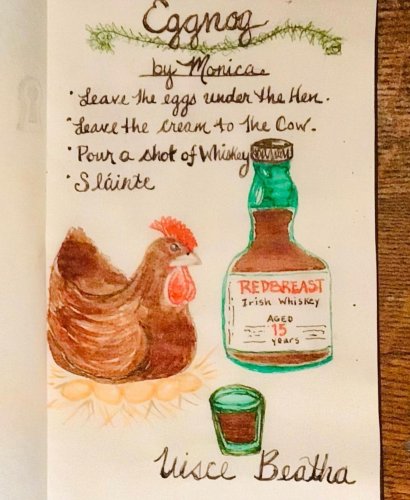 Eggnog
by Monica.
• Leave the eggs under the Hen.
• Leave the cream to the Cow.
• Pour a shot of Whiskey
• Sláinte
REDBREAST
Irish Whiskey
AGED
15
years
Uisce Beatha